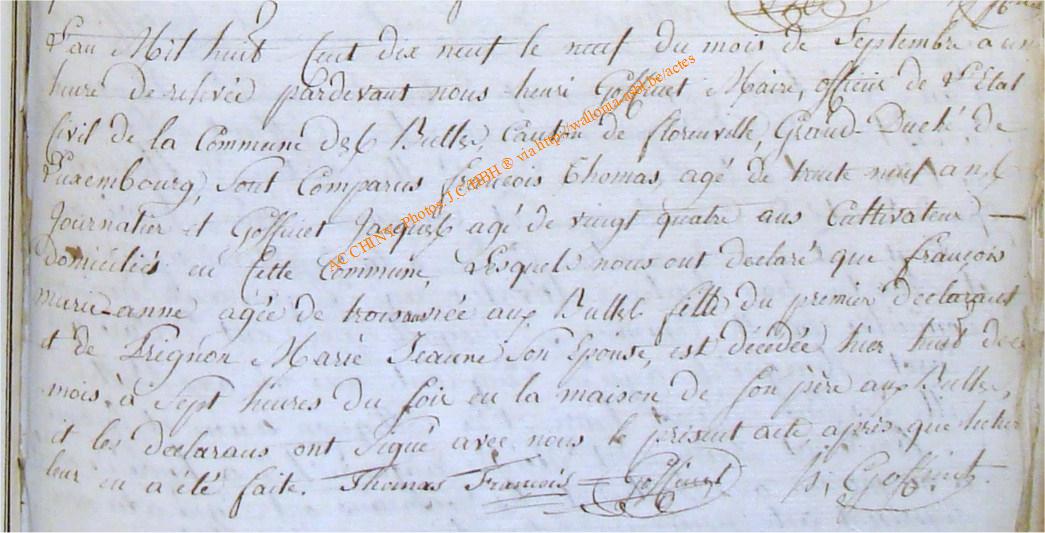 L'an Mil huit Cent dix neuf le neuf du mois de Septembre a une
heure de relevée pardevant nous henri Goffinet Maire, officier de L'Etat
Civil de la Commune des Bulles, Canton de florenville, Grand-Duché de
Luxembourg, Sont Comparus françois Thomas, agé de trente neuf ans
Journalier et Goffinet Jacques agé de vingt quatre ans Cultivateur —
domiciliés en Cette Commune, Lesquels nous ont declaré que françois
marie-anne agée de trois ans née aux Bulles fille du premier declarant
et de Prignon Marie Jeanne Son Epouse, est décédée hier huit de ce
mois, à Sept heures du Soir en la maison de Son père aux Bulles,
et les declarans ont signé avec nous le présent acte, après que lecture
leur en a été faite. Thomas François = Goffinet h; Goffinet.
ACCHINY-Photos J.C. HBH ® via http://wallonia-asbl.be/actes